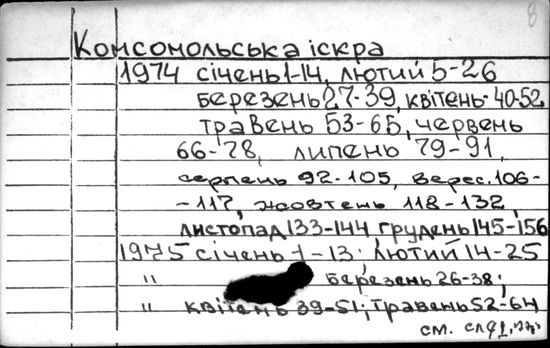 8
Комсомольська іскра
1974 січень 1-14, лютий 5-26
березень 27-39, квітень-40-52,
травень 53-65, червень
66-78, липень 79-91,
серпень 92-105, верес. 106-
-117, жовтень 118-132,
листопад 133-144, грудень 145-156
1975 січень 1-13; лютий 14-25
" березень 26-38;
" квітень 39-51; травень 52-64
см. след.